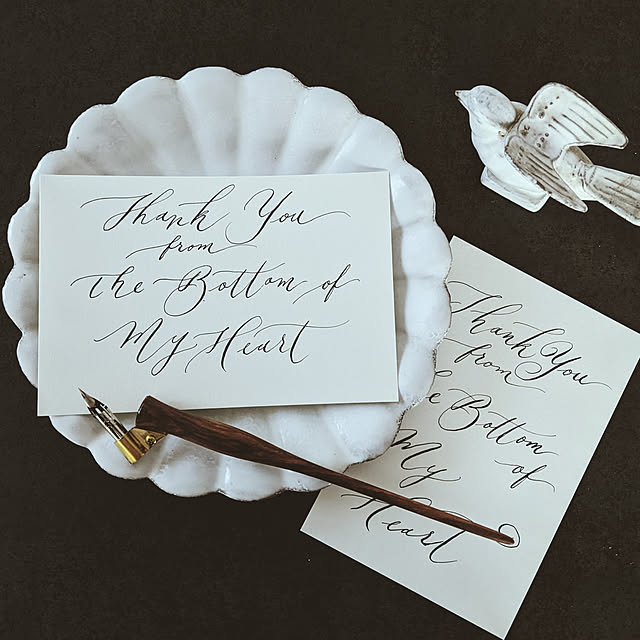 Thank You
from
The Bottom of
My Heart
Thank You
from
he Bottom
My of
Heart